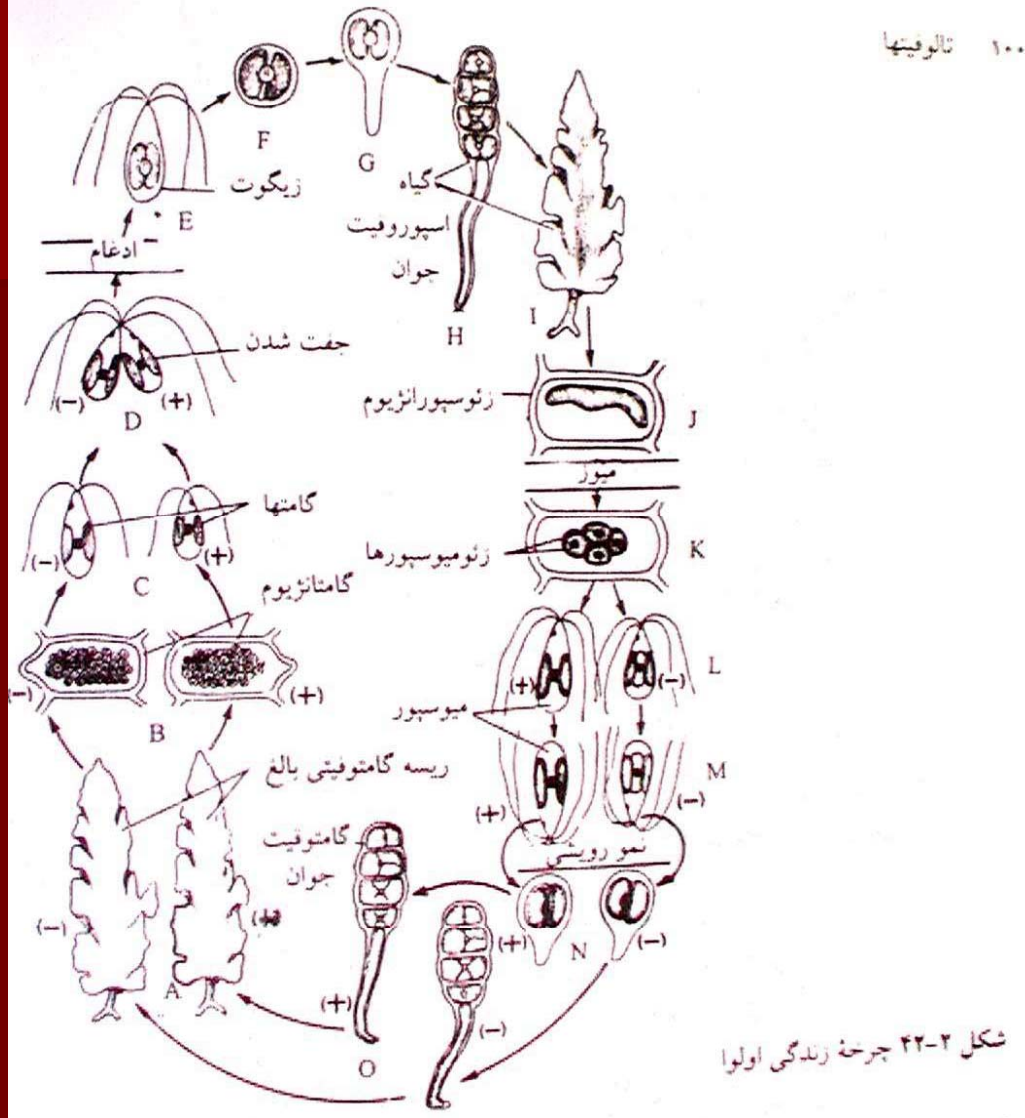 ۱۰۰ تالوفیتها
F
G
زیگوت
E
گیاه
اسپوروفیت
جوان
H
I
ادغام
جفت شدن
(-)
(+)
D
زئوسپورانژیوم
J
میوز
گامتها
(-)
(+)
C
زئومیوسپورها
K
گامتانژیوم
(-)
(+)
B
(+)
(-)
L
میوسپور
(+)
(-)
M
ریسه گامتوفیتی بالغ
نمو رویشی
گامتوفیت
جوان
(-)
(+)
A
(+)
(-)
N
(+)
(-)
O
شکل ۲-۴۲ چرخهٔ زندگی اولوا